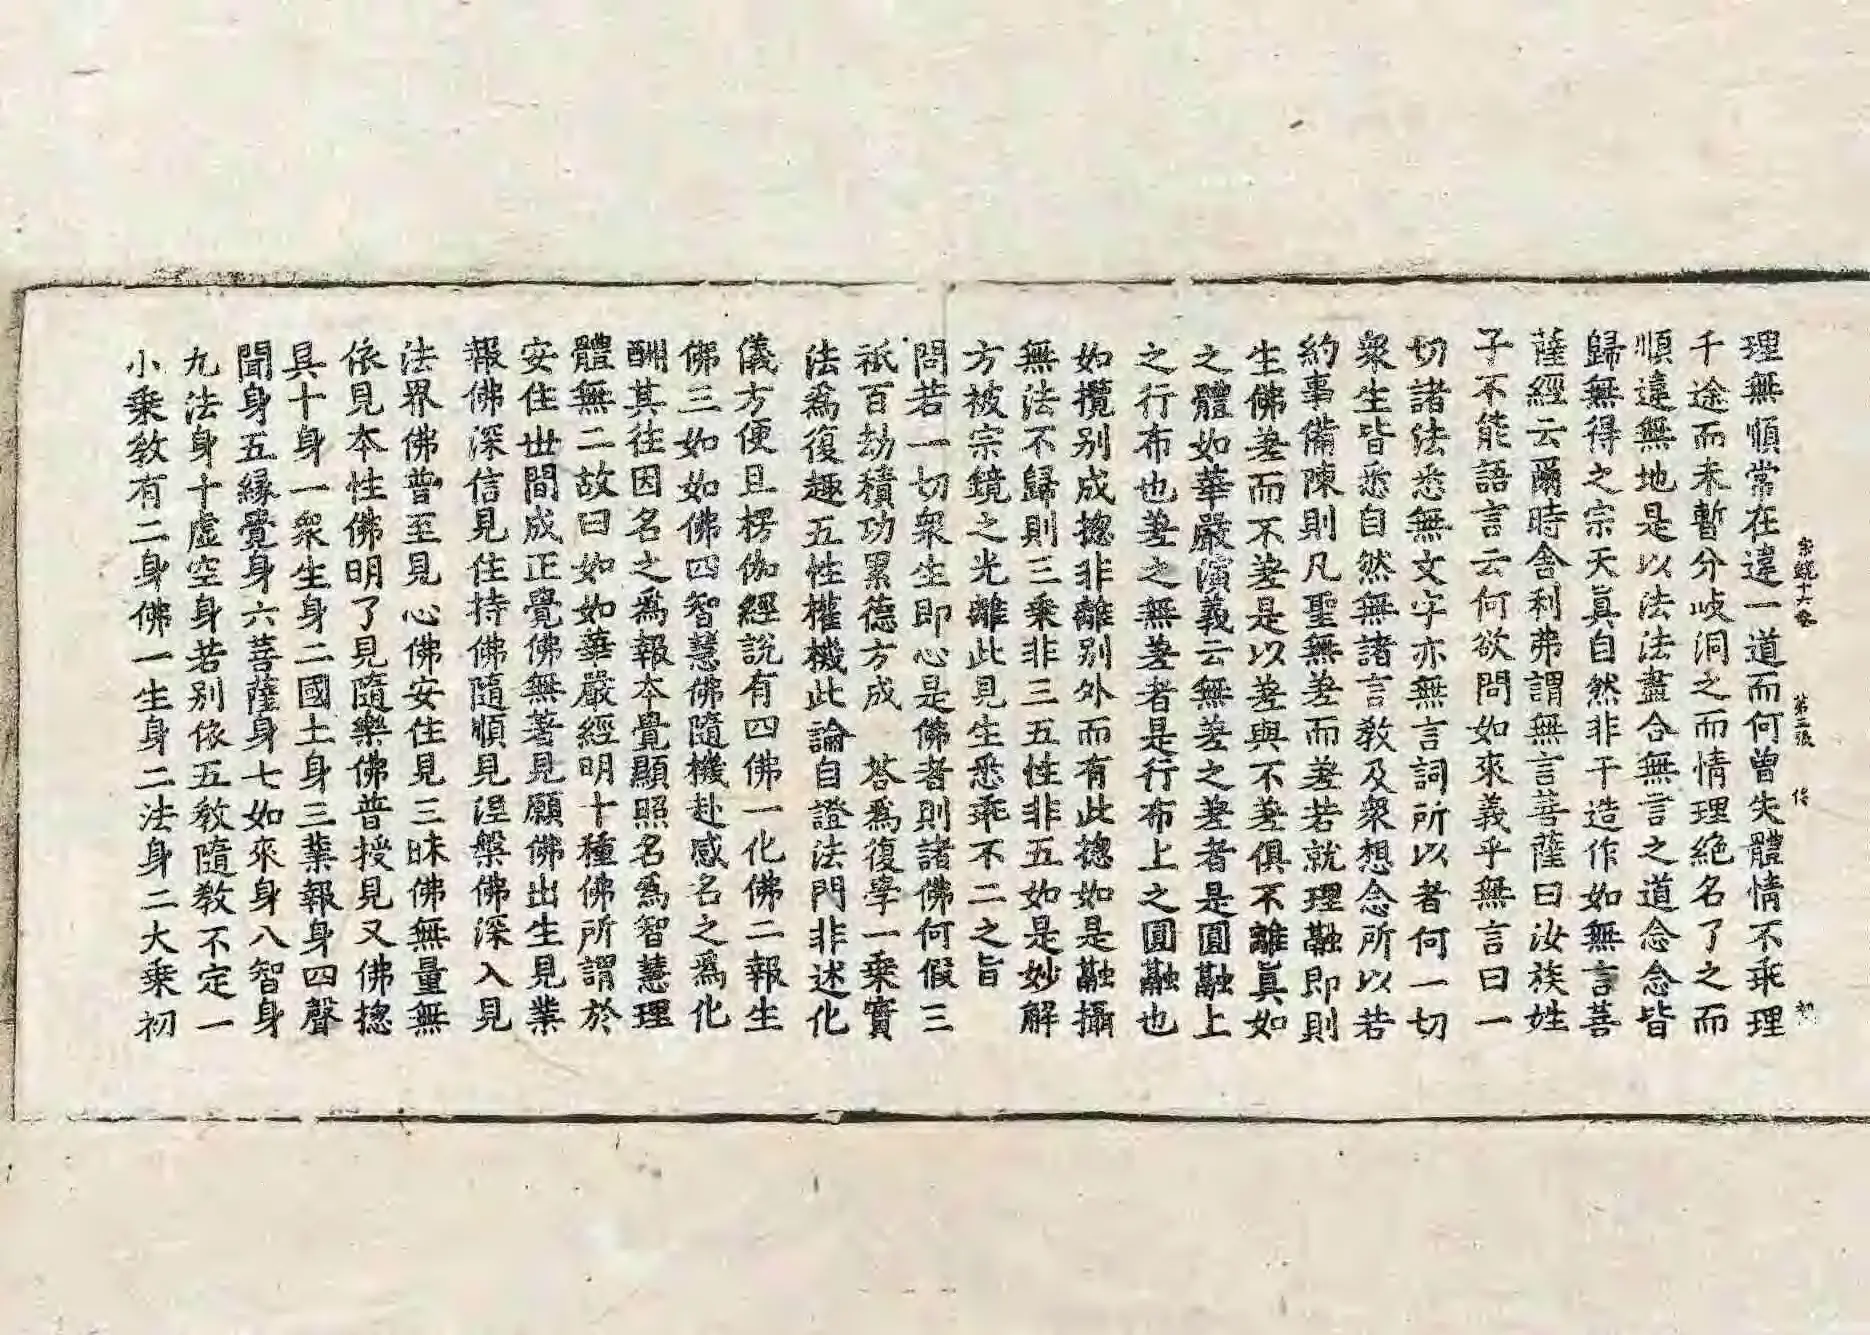 宗鏡十六卷 第二張 俠 初
理無順常在違一道而何曾失體情不乖理
千途而未暫分岐洞之而情理絕名了之而
順違無地是以法法盡合無言之道念念皆
歸無得之宗天真自然非干造作如無言菩
薩經云爾時舍利弗謂無言菩薩曰汝族姓
子不能語言云何欲問如來義乎無言曰一
切諸法悉無文字亦無言詞所以者何一切
衆生皆悉自然無諸言教及衆想念所以若
約事備陳則凡聖無差而差若就理融即則
生佛差而不差是以差與不差俱不離真如
之體如華嚴演義云無差之差者是圓融上
之行布也差之無差者是行布上之圓融也
如攬别成揔非離别外而有此揔如是融攝
無法不歸則三乘非三五性非五如是妙解
方被宗鏡之光離此見生悉乖不二之旨
問若一切衆生即心是佛者則諸佛何假三
祇百劫積功累德方成 荅爲復學一乘實
法爲復趣五性權機此論自證法門非述化
儀方便且楞伽經說有四佛一化佛二報生
佛三如如佛四智慧佛隨機赴感名之爲化
酬其往因名之爲報本覺顯照名爲智慧理
體無二故曰如如華嚴經明十種佛所謂於
安住世間成正覺佛無著見願佛出生見業
報佛深信見住持佛隨順見涅槃佛深入見
法界佛普至見心佛安住見三昧佛無量無
依見本性佛明了見隨樂佛普授見又佛揔
具十身一衆生身二國土身三業報身四聲
聞身五緣覺身六菩薩身七如來身八智身
九法身十虛空身若别依五教隨教不定一
小乘教有二身佛一生身二法身二大乘初